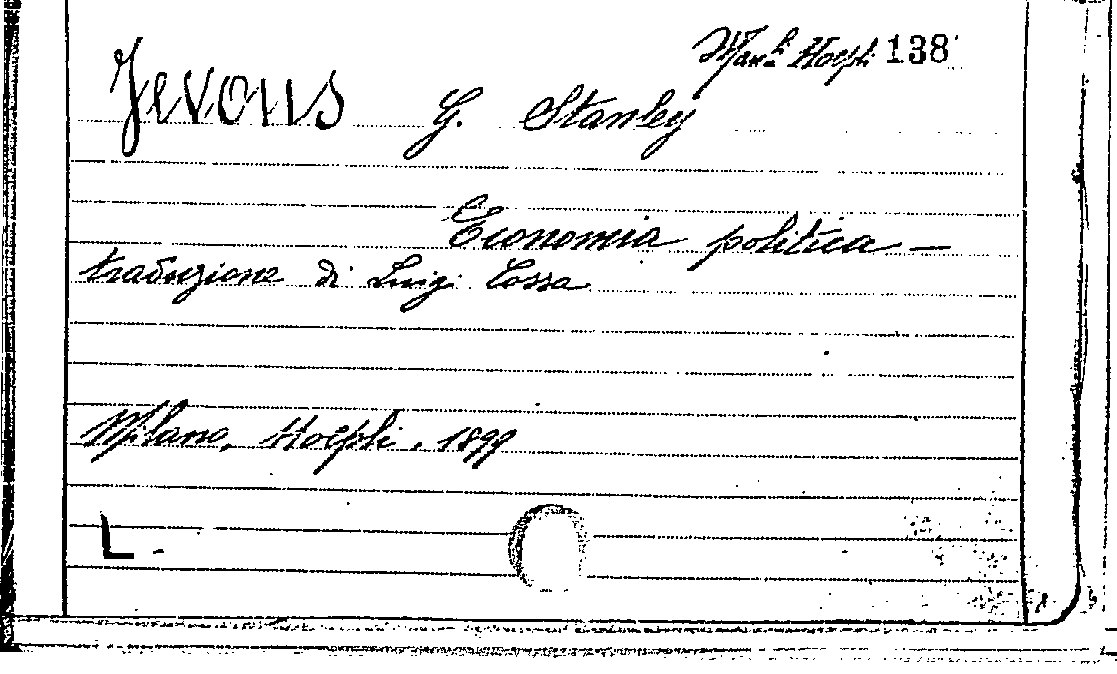 Man.li Hoepli 138
Jevons G. Stanley
Economia politica —
traduzione di Luigi Cossa
Milano, Hoepli. 1899
L.